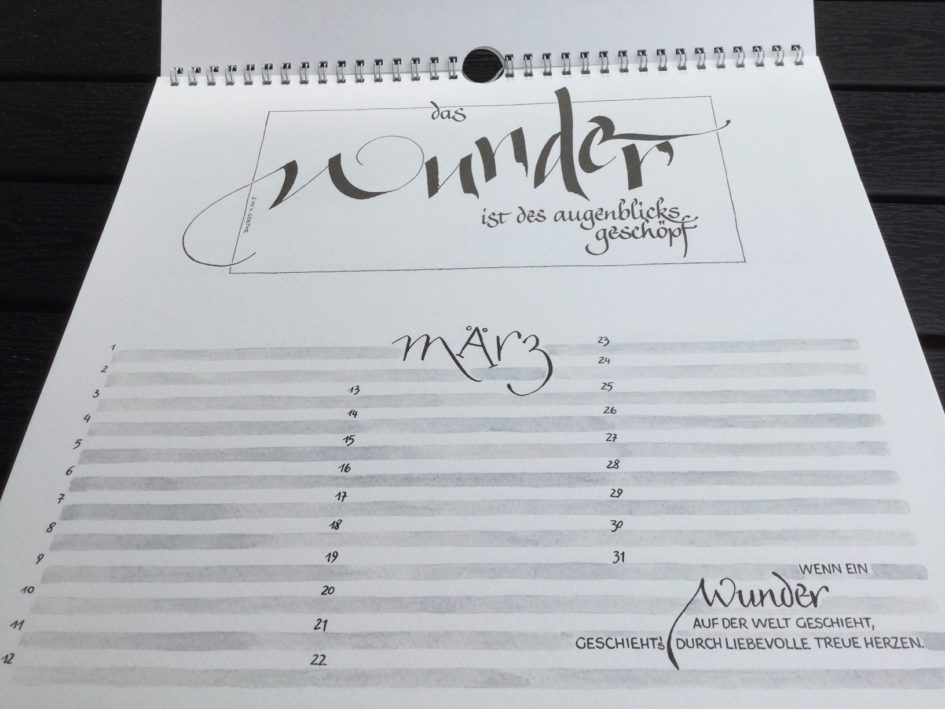 das
Wunder
ist des augenblicks
geschöpf
J.W.V. GOETHE
märz
1
2
3
4
5
6
7
8
9
10
11
12
13
14
15
16
17
18
19
20
21
22
23
24
25
26
27
28
29
30
31
WENN EIN
Wunder
AUF DER WELT GESCHIEHT,
GESCHIEHT'S DURCH LIEBEVOLLE TREUE HERZEN.